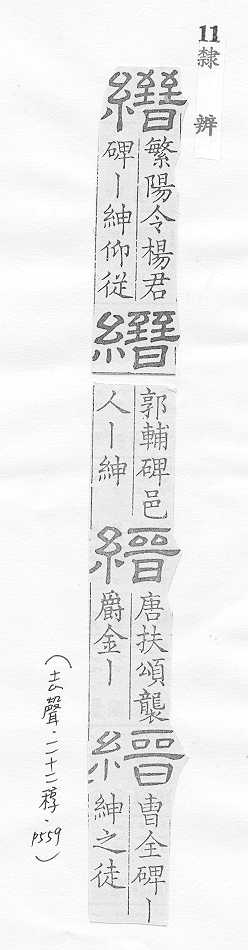 11
隸辨
縉
繁陽令楊君
碑｜紳仰從
縉
郭輔碑邑
人｜紳
縉
唐扶頌襲
爵金｜
縉
曹全碑｜
紳之徒
（去聲·二十二稕·P559）